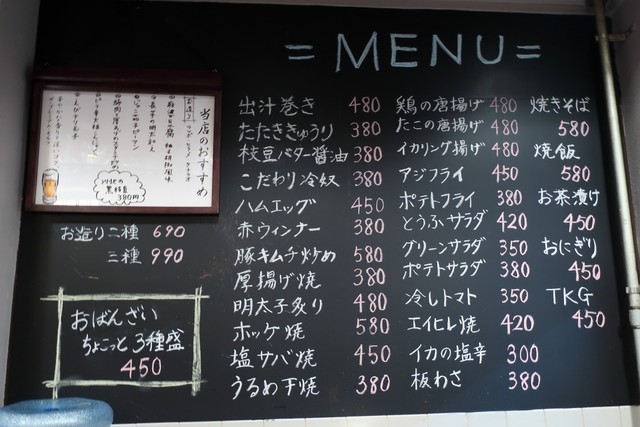 = MENU =
出汁巻き 480
たたききゅうり 380
枝豆バター醤油 380
こだわり冷奴 380
ハムエッグ 450
赤ウィンナー 380
豚キムチ炒め 580
厚揚げ焼 380
明太子炙り 480
ホッケ焼 580
塩サバ焼 450
うるめ干焼 380
鶏の唐揚げ 480
たこの唐揚げ 480
イカリング揚げ 480
アジフライ 450
ポテトフライ 380
とうふサラダ 420
グリーンサラダ 350
ポテトサラダ 380
冷しトマト 350
エイヒレ焼 420
イカの塩辛 300
板わさ 380
焼きそば
580
焼飯
580
お茶漬け
450
おにぎり
450
TKG
450
当店のおすすめ
黒枝豆
380円
お造り二種 690
三種 990
おばんざい
ちょこっと3種盛
450